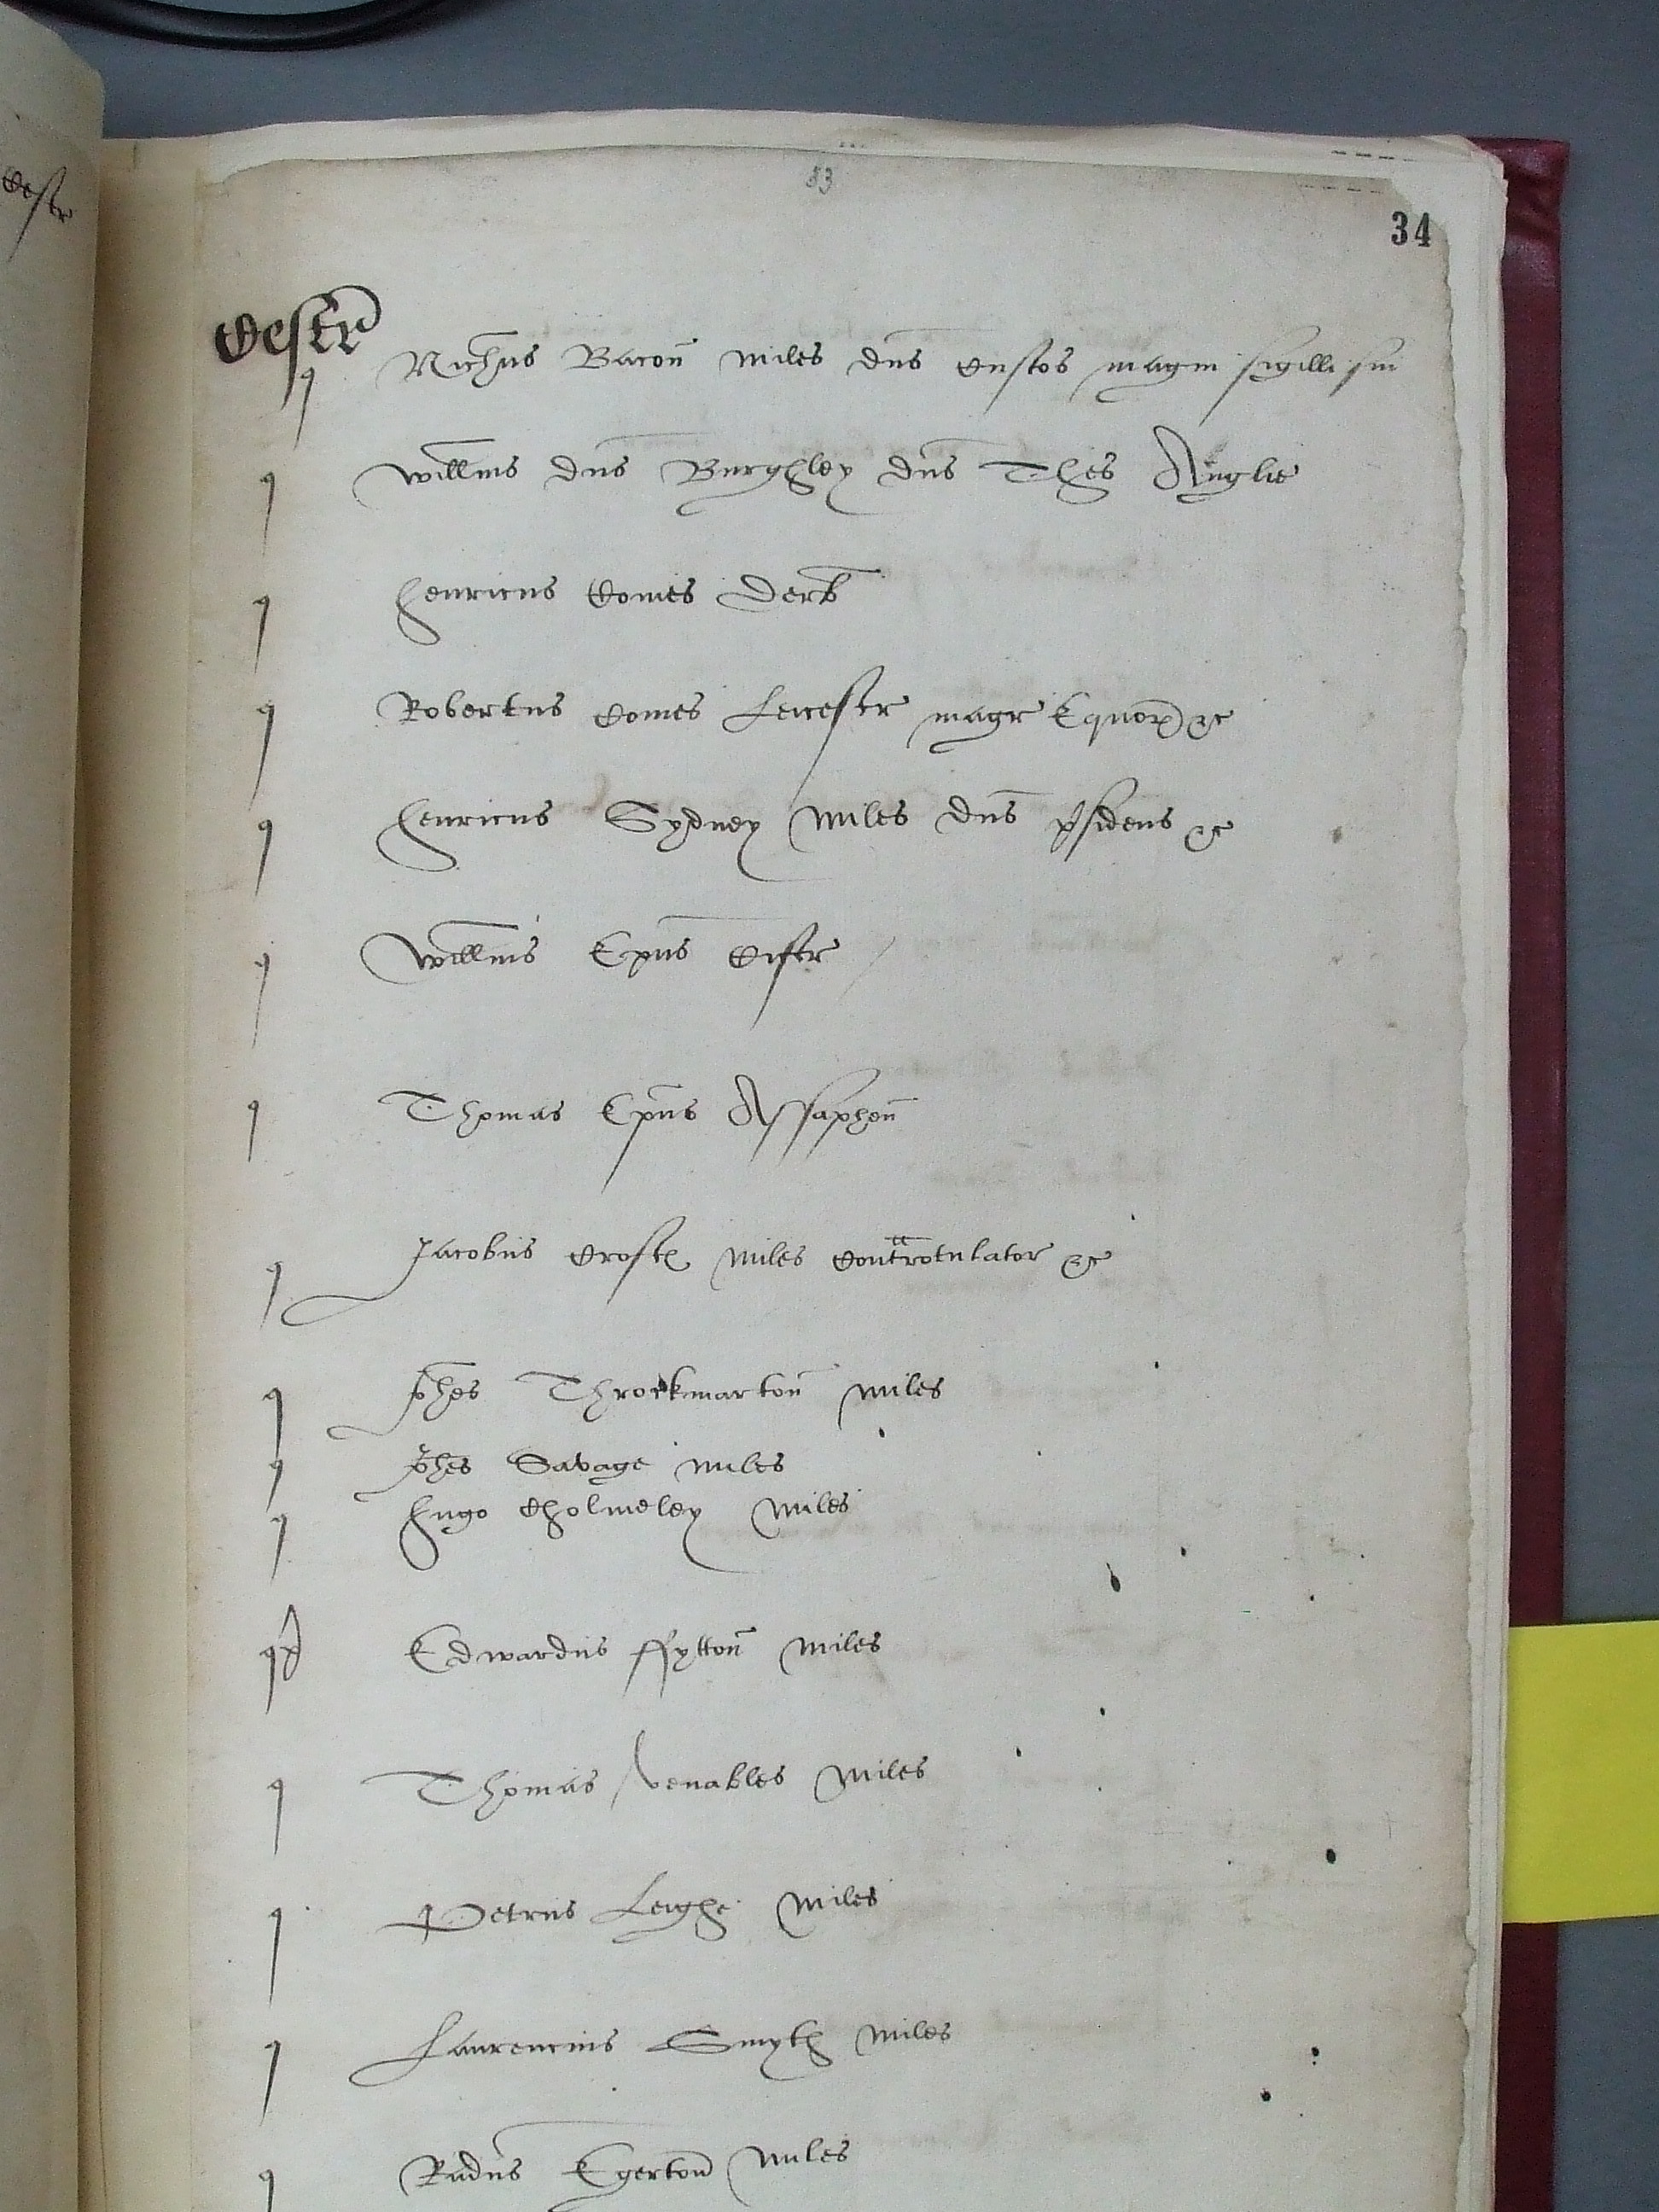 Cestr
83
34
Cestr
q Nichus Bacon miles dns Custos magni sigilli sui
q Willms dns Burghley dns Thes Anglie
q Henricus Comes Derb
q Robertus Comes Leicestr magr Equor &c
q Henricus Sydney miles dns psidens &c
q Willms Epus Cistr
q Thomas Epus Assaphen
q Jacobus Croft miles Contrarotulator &c
q Johes Throckmarton miles
q Johes Savage miles
q Hugo Cholmeley miles
q Edwardus ffytton miles
q Thomas Venables miles
q Petrus Leighe miles
q Laurencius Smyth miles
q Radus Egerton miles